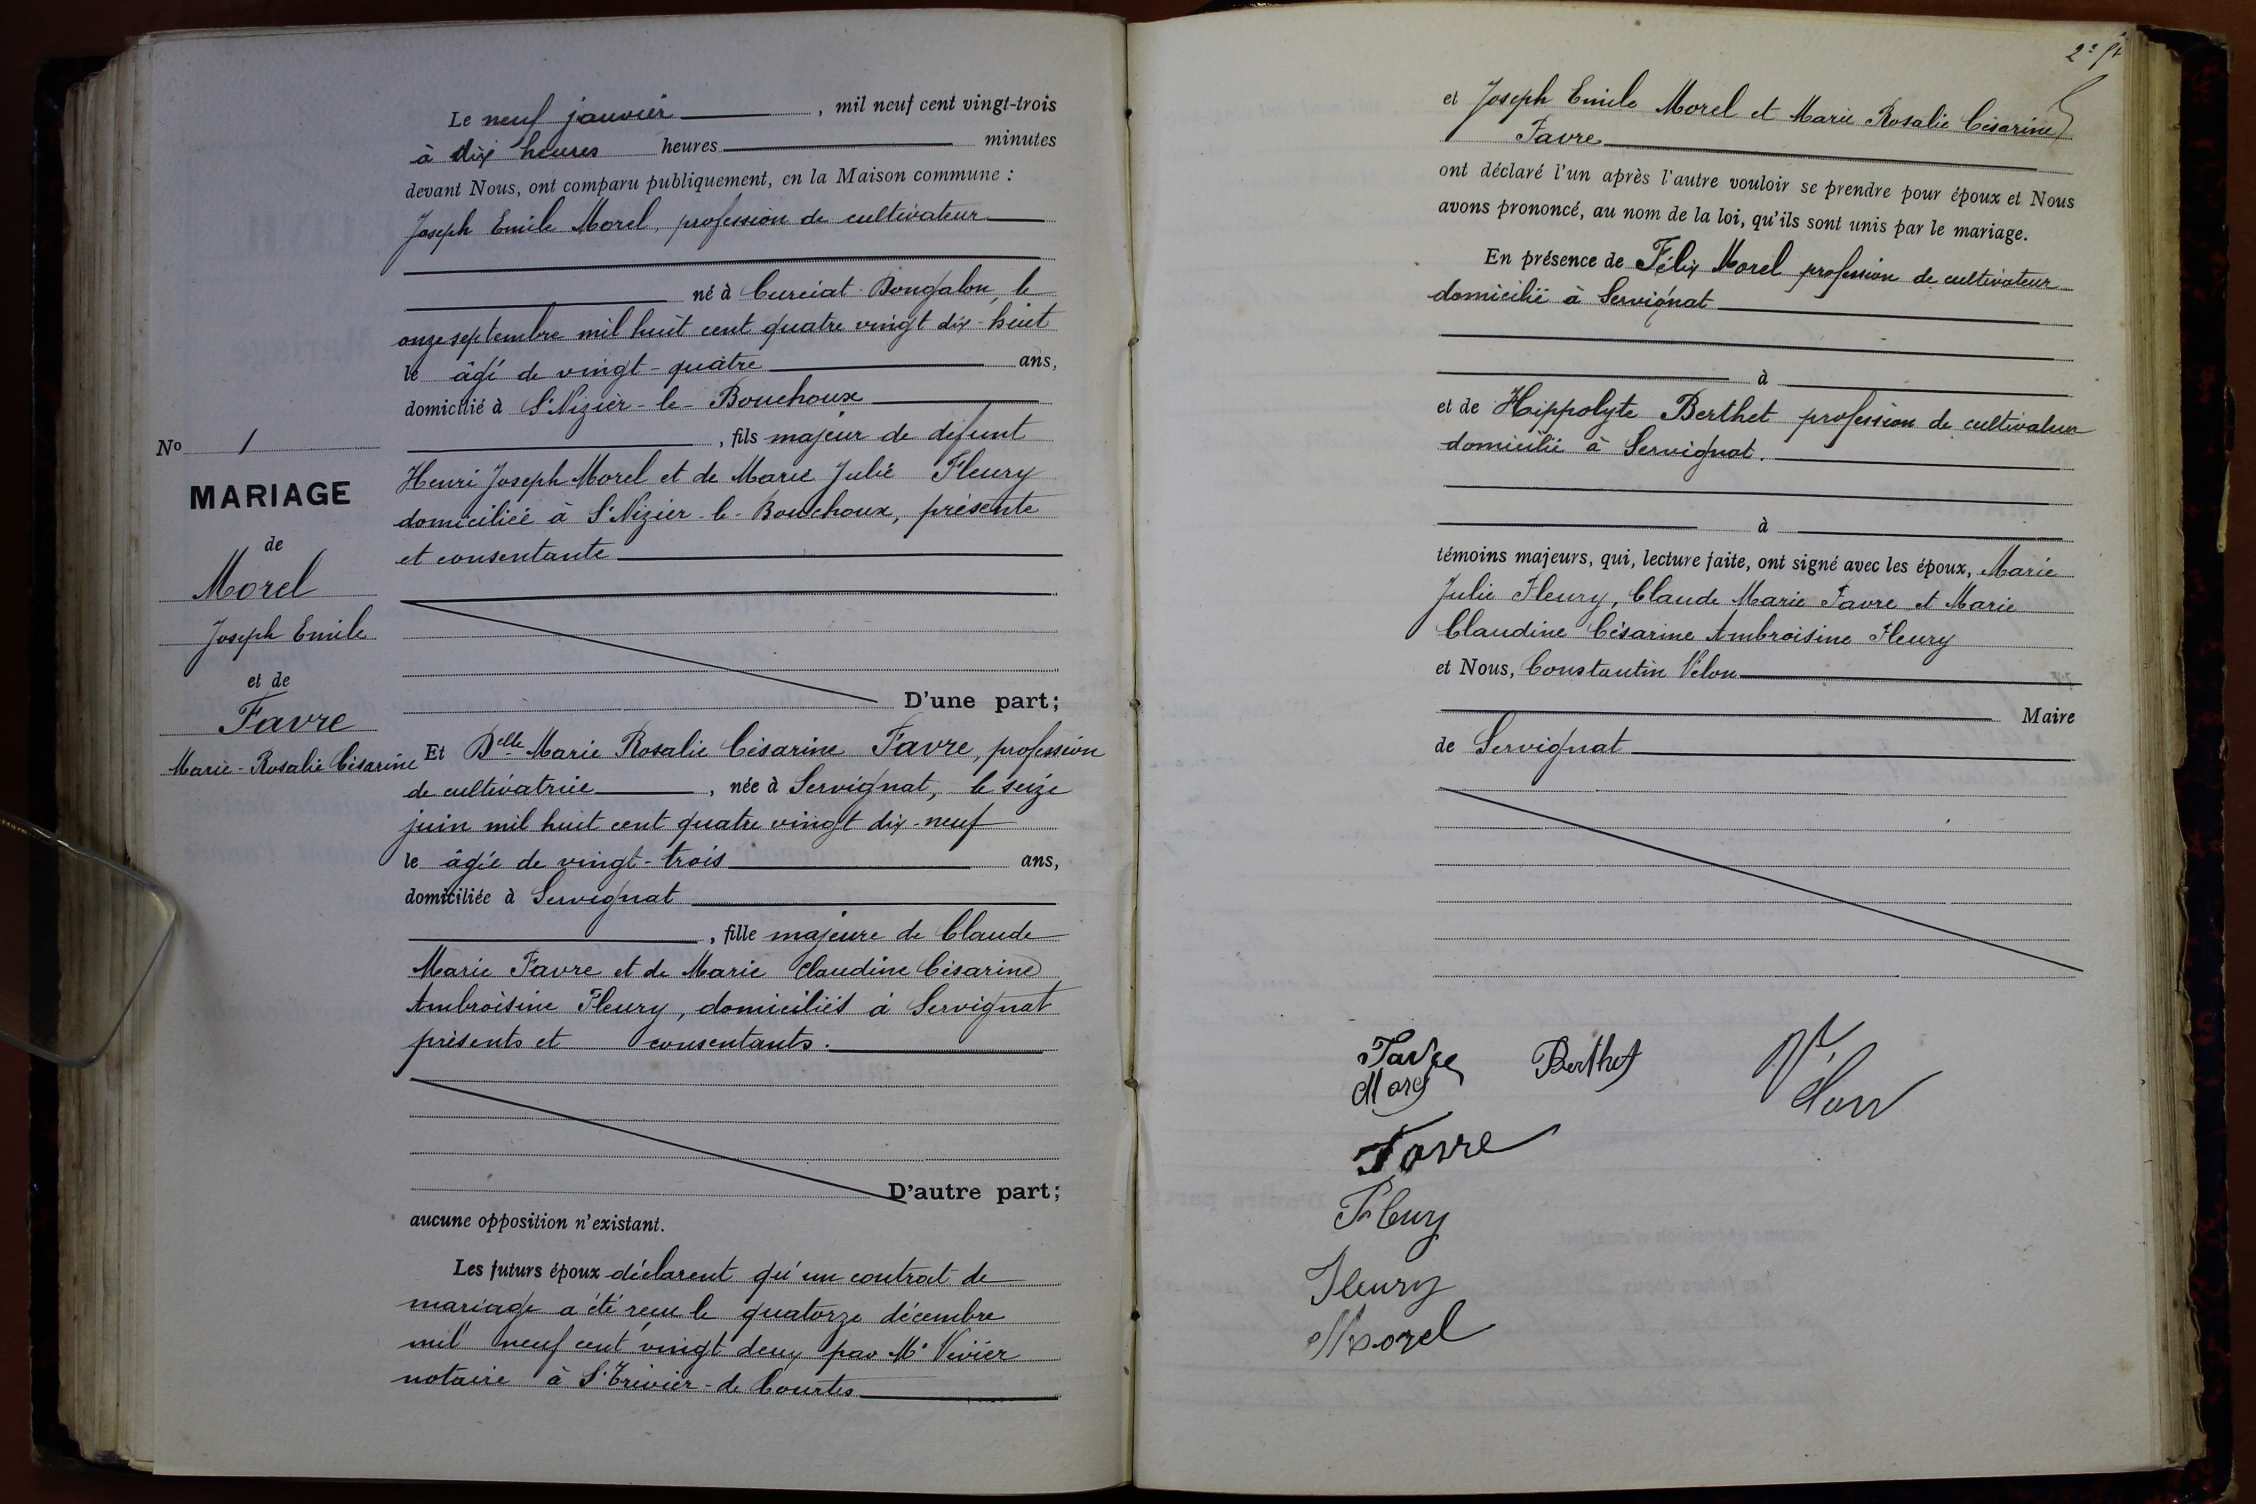 Le neuf janvier, mil neuf cent vingt-trois
à dix heures heures minutes
devant Nous, ont comparu publiquement, en la Maison commune :
Joseph Emile Morel, profession de cultivateur
né à Curciat-Dongalon, le
onze septembre mil huit cent quatre vingt dix-huit
le âgé de vingt-quatre ans,
domicilié à St Nizier-le-Bouchoux
, fils majeur de défunt
Henri Joseph Morel et de Marie Julie Fleury
domiciliée à St Nizier-le-Bouchoux, présente
et consentante
D'une part;
Et Delle Marie Rosalie Césarine Favre, profession
de cultivatrice, née à Servignat, le seize
juin mil huit cent quatre vingt dix-neuf
le âgée de vingt-trois ans,
domiciliée à Servignat
, fille majeure de Claude
Marie Favre et de Marie Claudine Césarine
Ambroisine Fleury, domiciliés à Servignat
présents et consentants.
D'autre part;
aucune opposition n'existant.
Les futurs époux déclarent qu'un contrat de
mariage a été reçu le quatorze décembre
mil neuf cent vingt deux par Me Vivier
notaire à St Trivier-de Courtes
No 1
MARIAGE
de
Morel
Joseph Emile
et de
Favre
Marie-Rosalie Césarine
2e ft
et Joseph Emile Morel et Marie Rosalie Césarine
Favre
ont déclaré l'un après l'autre vouloir se prendre pour époux et Nous
avons prononcé, au nom de la loi, qu'ils sont unis par le mariage.
En présence de Félix Morel profession de cultivateur
domicilié à Servignat
à
et de Hippolyte Berthet profession de cultivateur
domicilié à Servignat.
à
témoins majeurs, qui, lecture faite, ont signé avec les époux, Marie
Julie Fleury, Claude Marie Favre et Marie
Claudine Césarine Ambroisine Fleury
et Nous, Constantin Vélon
Maire
de Servignat
Favre Berthet Vélon
Morel
Favre
Fleury
Fleury
Morel